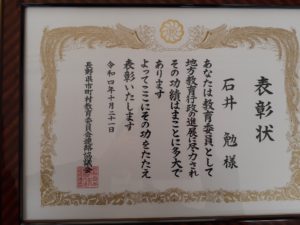 表彰状
石井 勉 様
あなたは教育委員として
地方教育行政の進展に尽力され
その功績はまことに多大で
あります
よってここにその功をたたえ
表彰いたします
令和四年十月二十一日
長野県市町村教育委員会連絡協議会